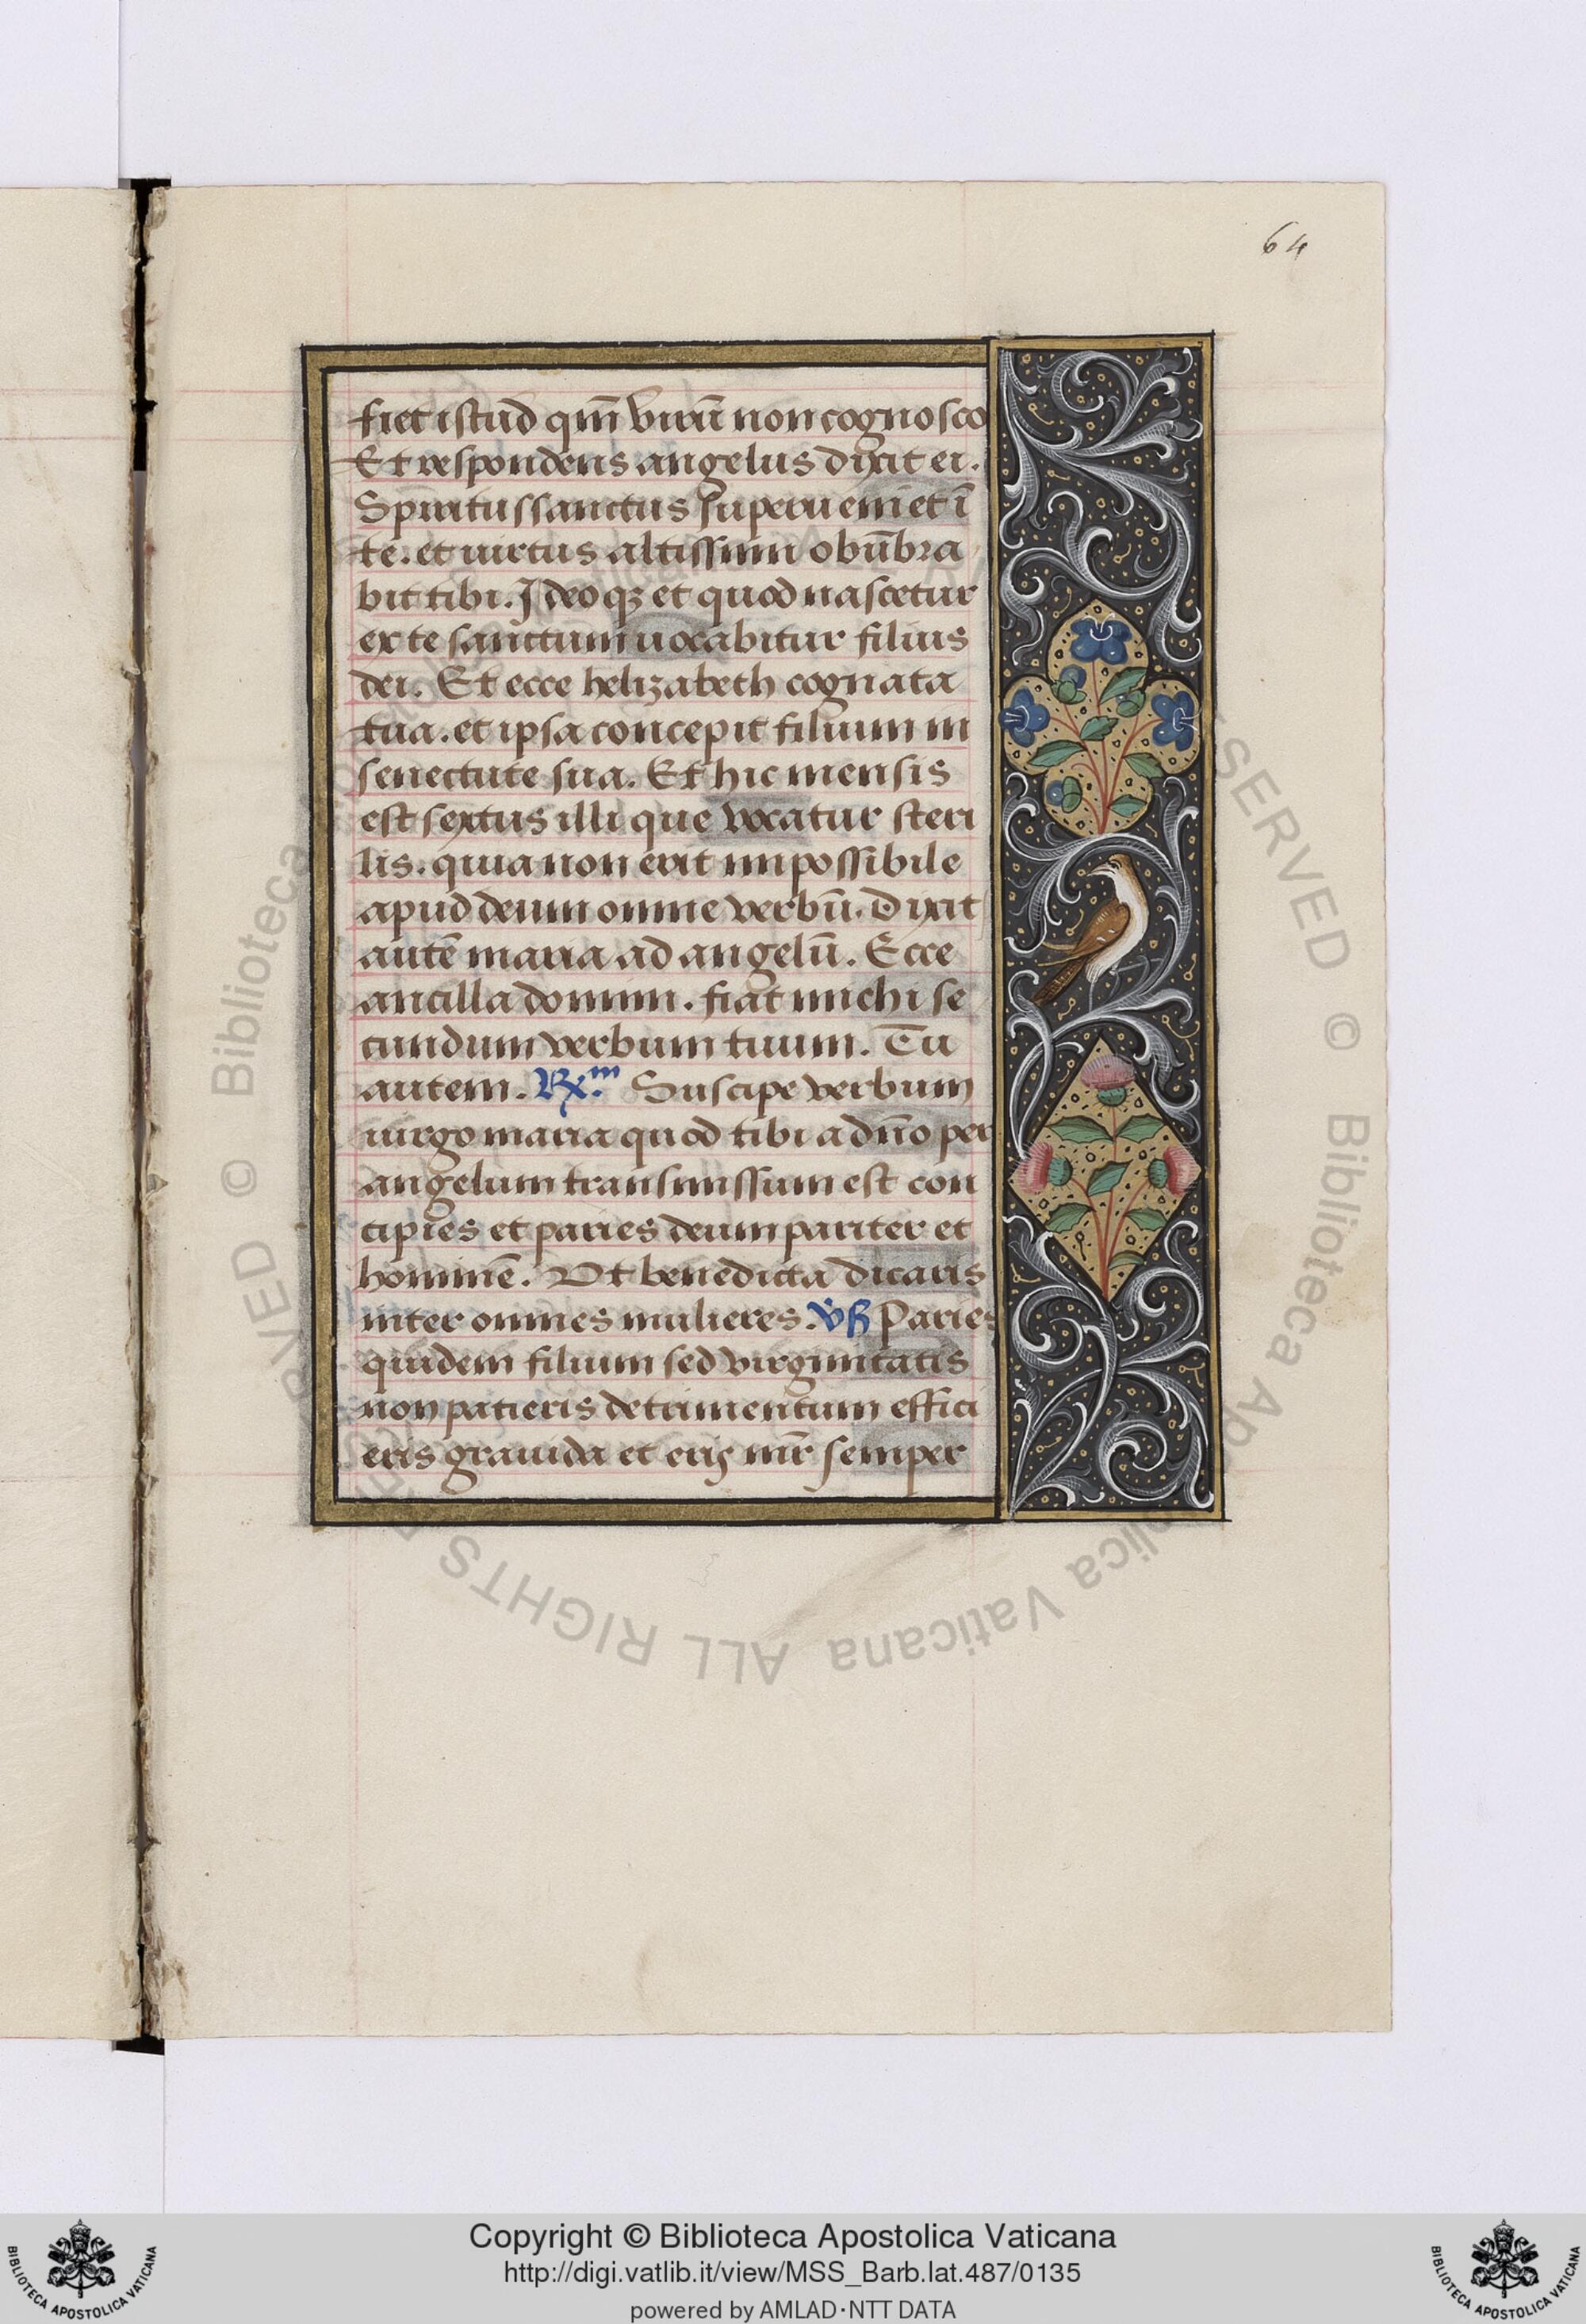 64
fiet istud qm̄ virū non cognosco
Et respondens angelus dixit ei.
Spiritussanctus superueniet ī
te. et uirtus altissimi obūbra
bit tibi. Ideoqꝫ et quod nascetur
ex te sanctum uocabitur filius
dei. Et ecce helizabeth cognata
tua. et ipsa concepit filium in
senectute sua. Et hic mensis
est sextus illi que vocatur steri
lis. quia non erit impossibile
apud deum omne verbū. Dixit
autē maria ad angelū. Ecce
ancilla domini. fiat michi se
cundum verbum tuum. Tu
autem. Rx.m Suscipe verbum
uirgo maria quod tibi a dn̄o per
angelum transmissum est con
cipies et paries deum pariter et
hominē. Vt benedicta dicaris
inter omnes mulieres. vß Paries
quidem filium sed virginitatis
non patieris detrimentum effici
eris grauida et eris mr̄ semper
© Biblioteca Apostolica Vaticana ALL RIGHTS RESERVED
Copyright © Biblioteca Apostolica Vaticana
http://digi.vatlib.it/view/MSS_Barb.lat.487/0135
powered by AMLAD·NTT DATA
BIBLIOTECA APOSTOLICA VATICANA
BIBLIOTECA APOSTOLICA VATICANA